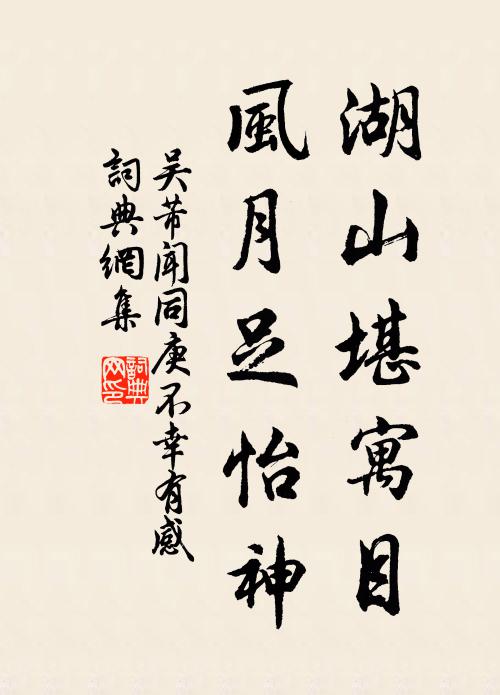 湖山堪寓目
風月足怡神
吴芾聞同庚不幸有感
詞典網集
詞典
网印